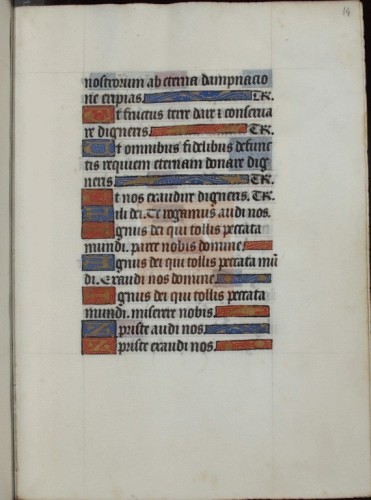 19
nostrorum ab eterna dampnacio
ne eripias. TR.
Et fructus terre dare ⁊ conserua
re digneris. TR.
Et omnibus fidelibus defunc
tis requiem eternam donare dig
neris TR.
Et nos exaudire digneris. TR.
Fili dei. Te rogamus audi nos.
Agnus dei qui tollis peccata
mundi. parce nobis domine.
Agnus dei qui tollis peccata mū
di. Exaudi nos domine.
Agnus dei qui tollis peccata
mundi. miserere nobis.
Xpriste audi nos.
Xpriste exaudi nos.